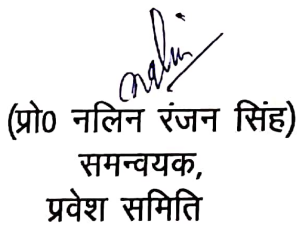 nalin
(प्रो० नलिन रंजन सिंह)
समन्वयक,
प्रवेश समिति